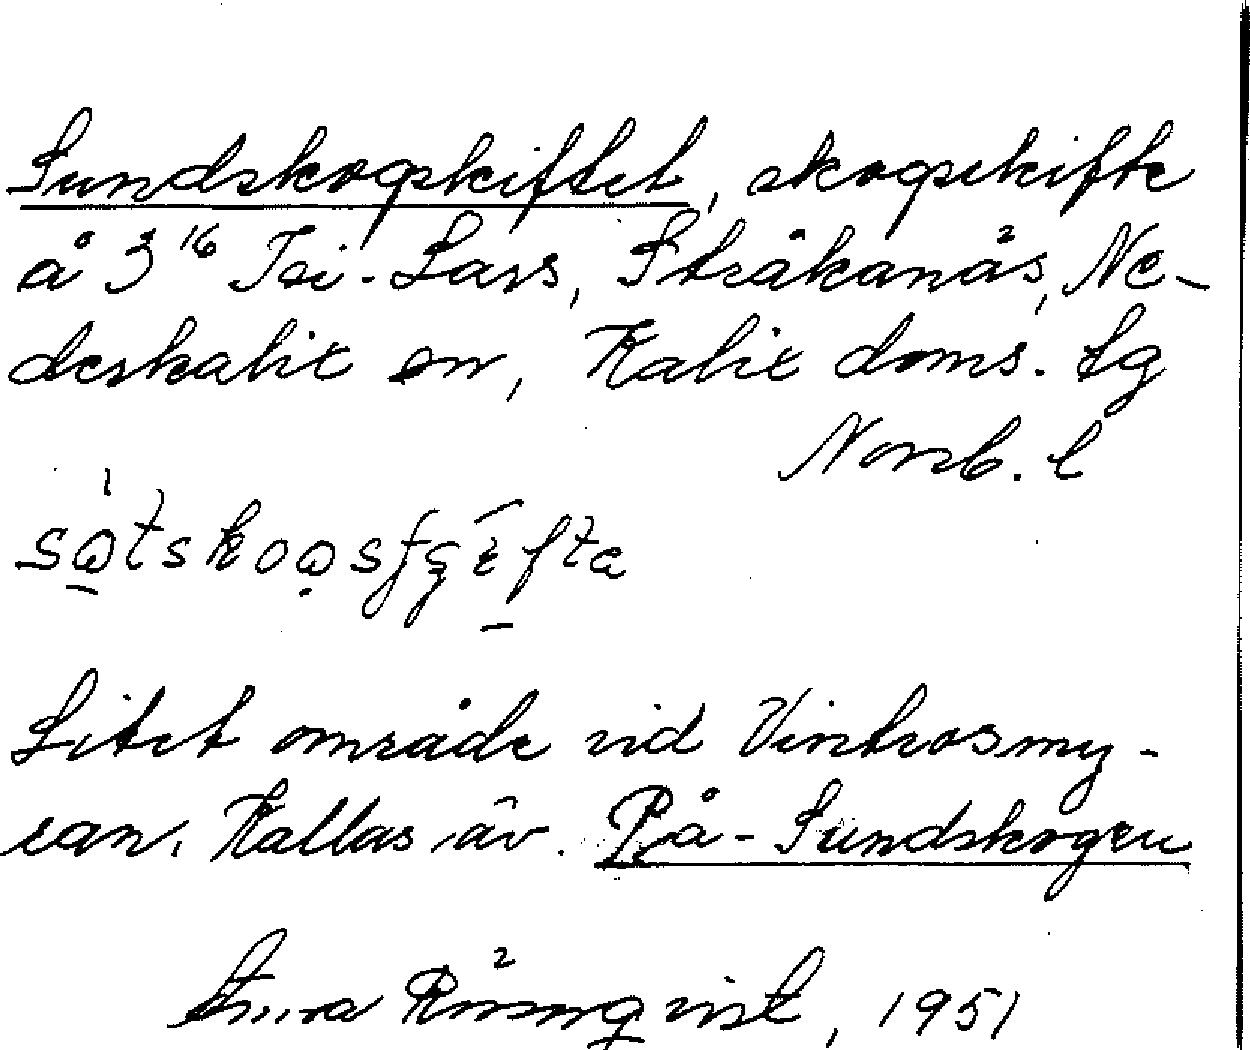 Sundskogskiftet, skogsskifte
å 3¹⁶ Isi-Lars, Stråkanäs, Ne-
derkalix sn, Kalix doms. tg
Norrb. l
Litet område vid Vintrosmy-
ran. Kallas äv. På-Sundskogen
Anna Rönnqvist, 1951